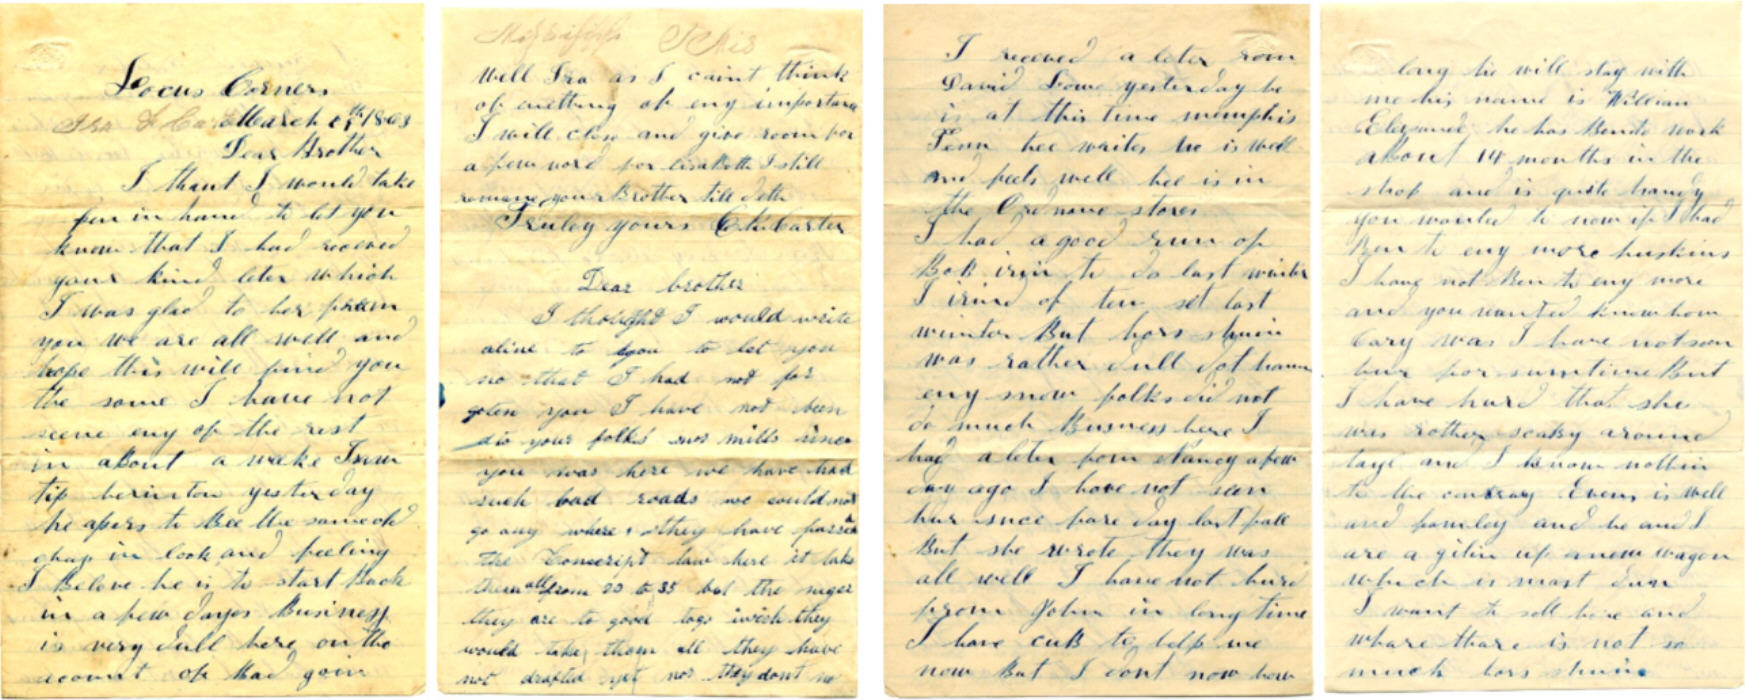 Locus Corners
March 8th 1863
Dear Brother
I thaut I would take
pen in hand to let you
know that I had receved
your kind leter which
I was glad to her from
you we are all well and
hope this will find you
the same I have not
seene eny of the rest
in about a weeke I saw
tip yesterday
he apers to Bee the same old
chap in look and feeling
I Beleve he is to start Back
in a few dayes Business
is very dull here on the
acount of Bad goin
Well Ira as I caint think
of enething of eny importance
I will close and give room for
a few word for I still
remane your Brother till deth
Truley yours C H Carter
Dear brother
I thought I would write
aline to you to let you
no that I had not for
goten you I have not been
to your folks nor mills since
you was here we have had
such bad roads we could not
go any where they have passed
the Conscript law here it take
them all from 20 to 35 but the niger
they are to good togo i wish they
would take them all they have
not drafted yet nor they dont no
I receved a leter from
David Lowe yesterday he
is at this time memphis
Tenn hee writes he is well
and feels well hee is in
the Ordnance stores
I had a good run of
Bob irin to do last winter
I irind of ten set last
wunter But hors shuin
was rather dull dot have
eny snow folks did not
do much Business here I
had a leter from Nancy a few
day ago I have not seen
hur snce fare day last fall
But she wrote they was
all well I have not hurd
from John in long time
I have cuB to help me
now But I dont now how
long he will stay with
me his name is William
he has Bendo work
about 14 months in the
shop and is quite handy
you wanted to now if I had
Ben to eny more huskins
I have not Ben to eny more
and you wanted know how
Cary was I have not seen
hur for sumtime But
I have hurd that she
was rother scaly around
and I know nothin
to the contray Evens is well
and famley and he and I
are a gitin up a new wagon
which is most dun
I want to sell here and
whare thare is not so
much hors shuin